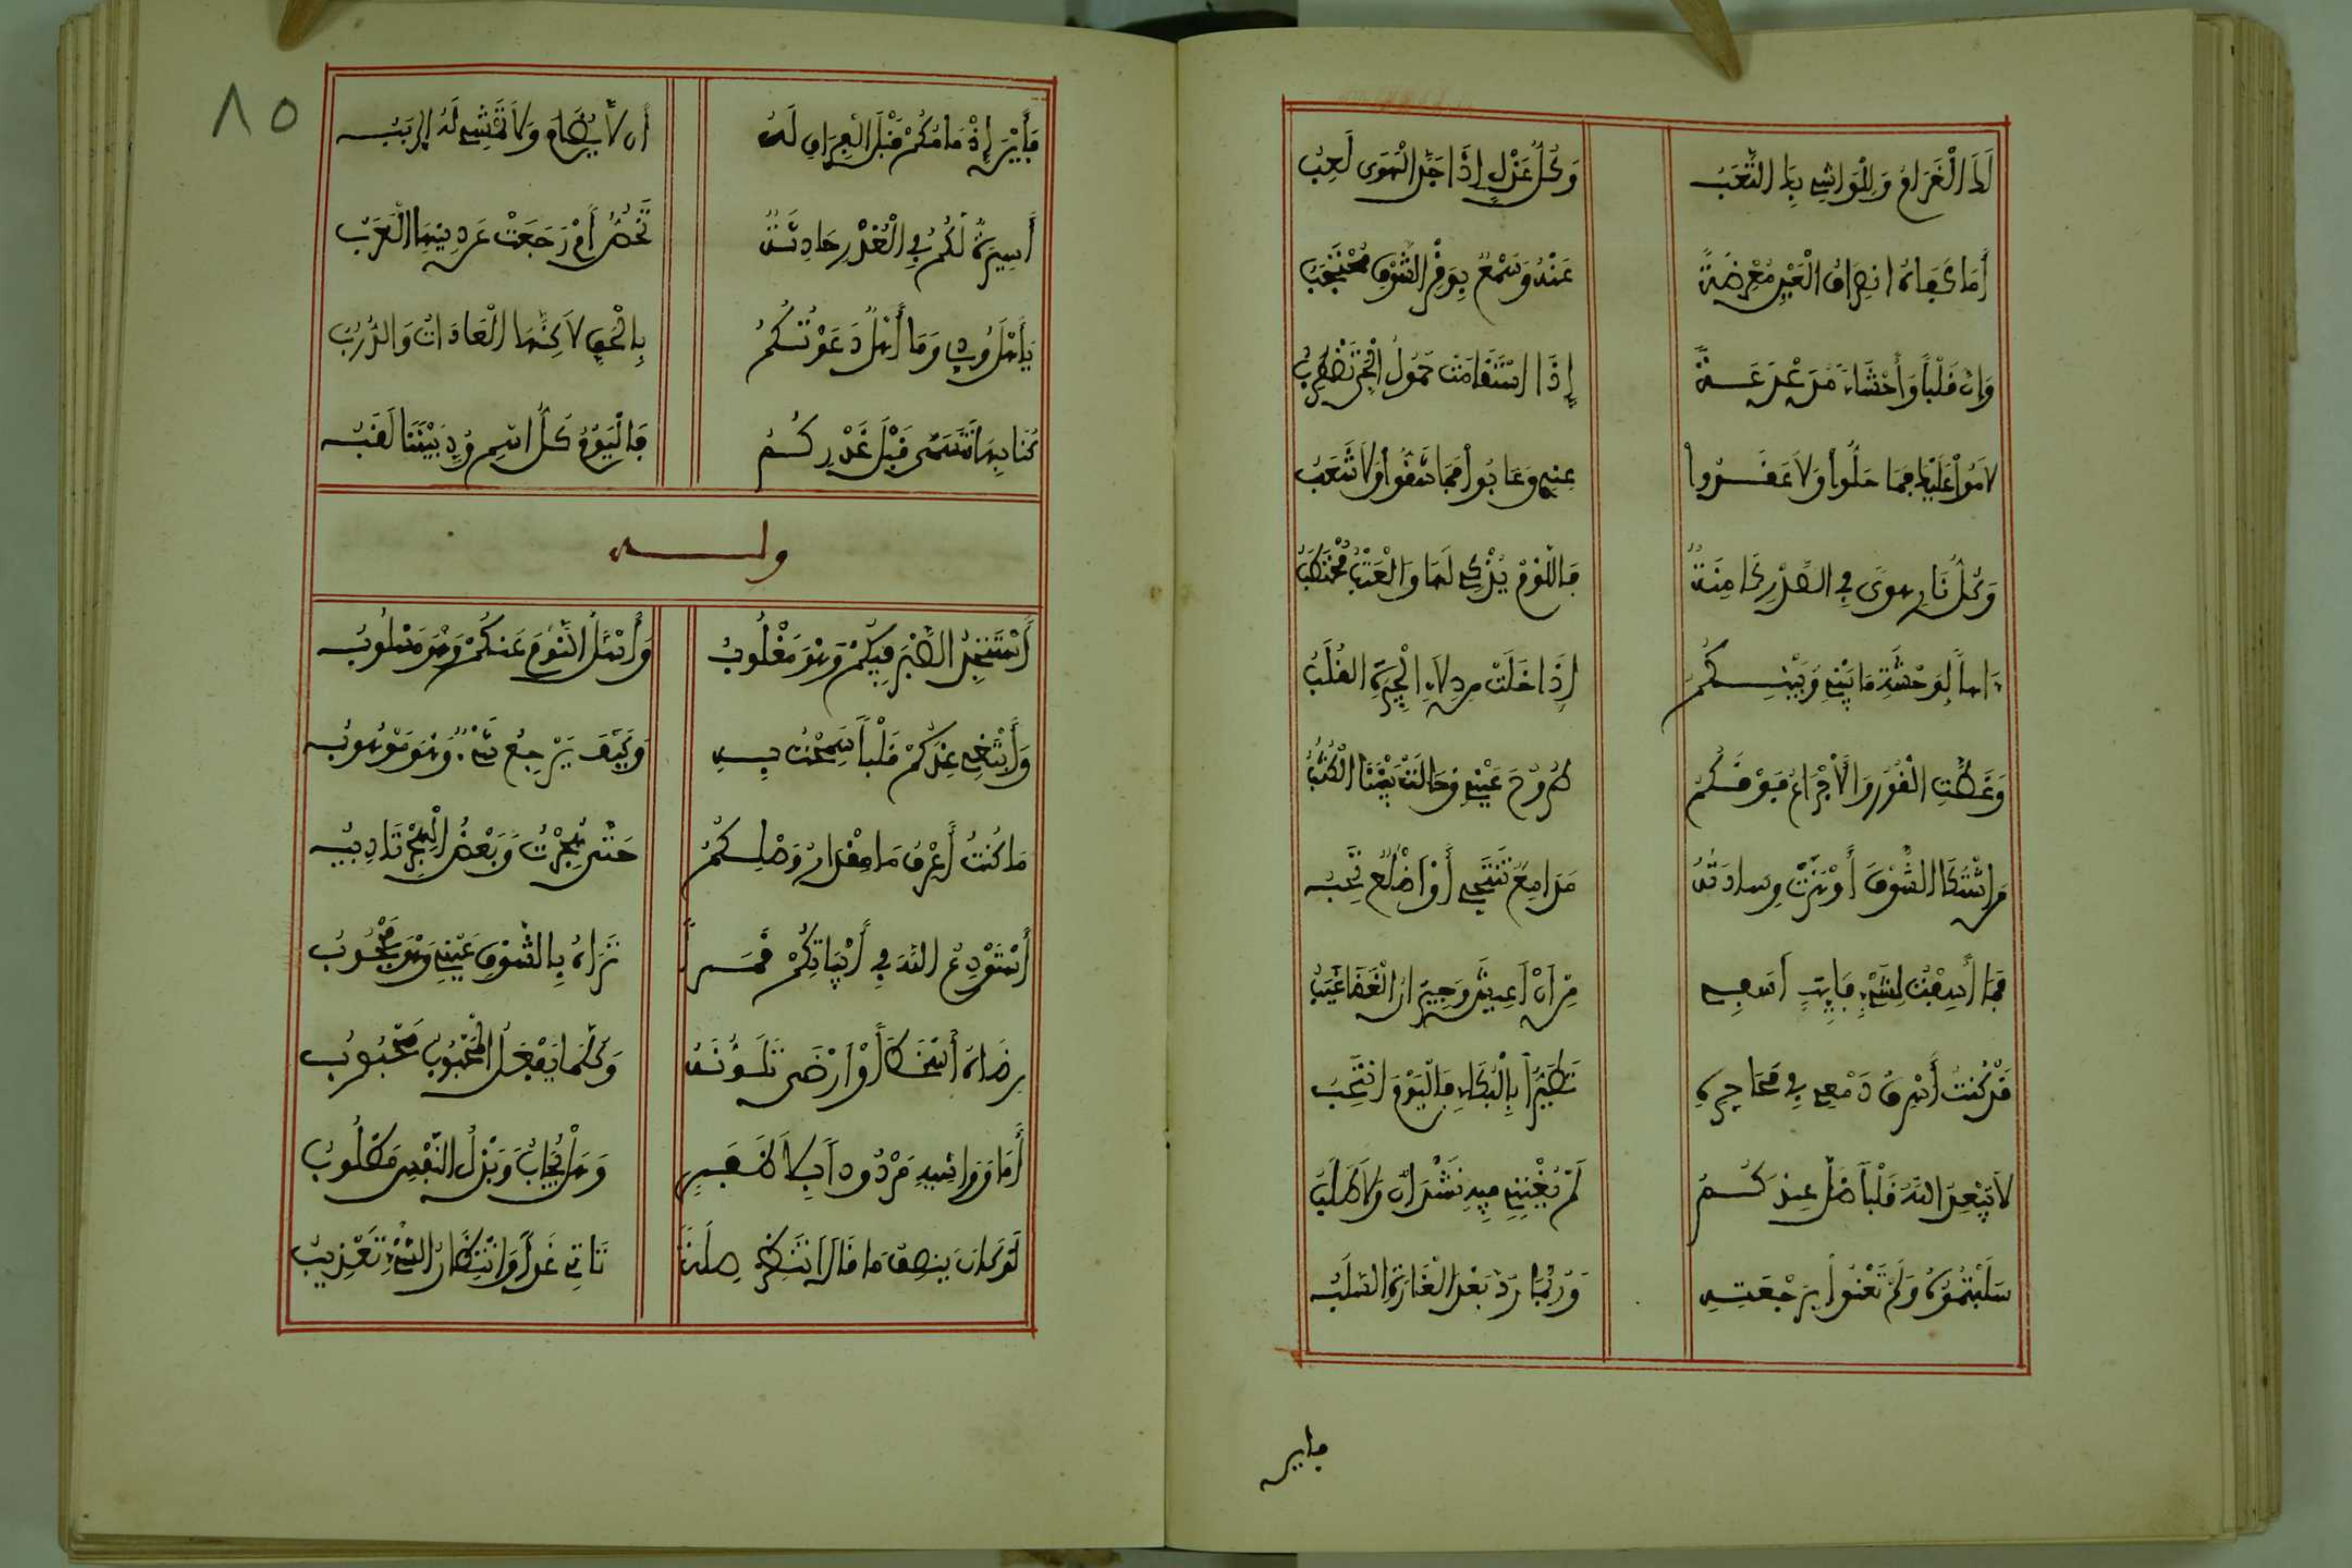 لَنَا الْغَرَامُ وَلِلْوَاشِي بِنَا التَّعَبُ وَكُلُّ عَذْلٍ إِذَا جَدَّ الْهَوَى لَعِبُ
أَمَا كَفَاهُ انْصِرَافُ الْعَيْنِ مُعْرِضَةً عَنْهُ وَسَمْعٌ بِوَقْرِ الشَّوْقِ مُحْتَجَبُ
وَان قَلْباً وَأَحْشَاءً إِذَا اسْتَقَامَتْ حُمُولُ الْحَيِّ تَضْطَرِبُ
لاَمُوا عَلَيْهَا فَمَا حَلُّوا وَلاَ عَقَدُوا عِنْدِي وَعَابُوا فَمَا شَقُّوا وَلاَ شَعَبُوا
وَكُلُّ نَارِ هَوىً فِي الصَّدْرِ كَامِنَةٌ فَاللَّوْمُ يُذْكِي لَهَا وَالْعَتْبُ مُحْتَطَبُ
ءاهاً لِوَحْشَةِ مَا بَيْنِي وَبَيْنِكُمُ إِذَا خَلَتْ مِن لاَهِ الْجِيرَةِ الْقُلُبُ
وَغَطَّتِ الْقُورُ وَالأَجْرَاعُ فَوْقَكُمُ طُرُوحَ عَيْنِي وَحَالَتْ بَيْنَنَا الْكُثُبُ
مَن اشْتَكَا الشَّوْقَ أَوْ هَزَّتْ وِسَادَتَهُ مَدَامِعٌ تَنْتَحِي أَوْ أَضْلُعٌ تَجِبُ
فَمَا أَسِفْتُ لِشَيْءٍ فَايِتٍ أَسَفِي مِن أَنْ أَعِيشَ وَجِيرَانُ الْغَضَا غَيَبُ
قَدْ كُنْتُ أَسْرِقُ دَمْعِي فِي مَحَاجِرِهِ تَطَيُّراً بِالْبُكَاءِ فَالْيَوْمَ انْتَحِبُ
لاَ يُبْعِدِ اللَّهُ قَلْباً ضَلَّ عِنْدَكُمُ لَمْ يُغْنِنِي فِيهِ نَشْدَانٌ وَلاَ طَلَبُ
سَلَبْتُمُوهُ وَلَمْ تَفْتُوا بِرَجْعَتِهِ وَرُبَّمَا رُدَّ بَعْدَ الْغَارَةِ السَّلَبُ
فاين
٨٥
فَأَيْنَ إِذْمَامُكُمْ قَبْلَ الْفِرَاقِ لَهُ أن لاَ يُضَامَ وَلاَ تَمْشِي لَهُ الرِيَبُ
أَسِيرَةٌ لَكُمُ فِي الْغُدْرِ حَادِثَةٌ تَخُصُّ أَمْ رَجَعَتْ عَن دِينِهَا الْعَرَبُ
يَأْهْلَ وُدِّي وَمَا أَهْلاً دَعَوْتُكُمُ بِالْحَقِّ لاَكِنَّهَا الْعَادَاتُ وَالدُّرُبُ
كُنَّا بِهَا نَتَسَمَّى قَبْلَ غَدْرِكُمُ فَالْيَوْمَ كُلُّ اسْمِ وُدٍّ بَيْنَنَا لَقَبُ
وله
أَسْتَنْجِدُ الصَّبْرَ فِيكُمْ وَهْوَ مَغْلُوبُ وَأَسْئَلُ النَّوْمَ عَنْكُمْ وَهْوَ مَسْلُوبُ
وَأَبْتَغِي عِنْدَكُمْ قَلْباً سَمَحْتُ بِهِ وَكَيْفَ يَرْجِعُ شَيْءٌ وَهْوَ مَوْهُوبُ
مَا كُنْتُ أَعْرِفُ مَا مِقْدَارُ وَصْلِكُمُ حَتَّى هُجِرْتُ وَبَعْضُ الْهَجْرِ تَادِيبُ
أَسْتَوْدِعُ اللَّهَ فِي أَبْيَاتِكُمْ قَمَراً تَرَاهُ بِالشَّوْقِ عَيْنِي وَهْوَ مَحْجُوبُ
رِضَاهُ أَسْخَطَ أَوْ أَرْضَى تَلَوُّنَهُ وَكُلُّمَا يَفْعَلُ الْمَحْبُوبُ مَحْبُوبُ
أَمَا وَوَاشِيهِ مَرْدُودٌ بِلاَ ظَفَرٍ وَهَلْ يُجَابُ وَبَذْلُ النَّفْسِ مَطْلُوبُ
لَوْ كَانَ يُنْصِفُ مَا قَالَ انْتَظِرْ صِلَةً تَاتِي غَداً وَانْتِظَارُ الشَّيْءِ تَعْذِيبُ